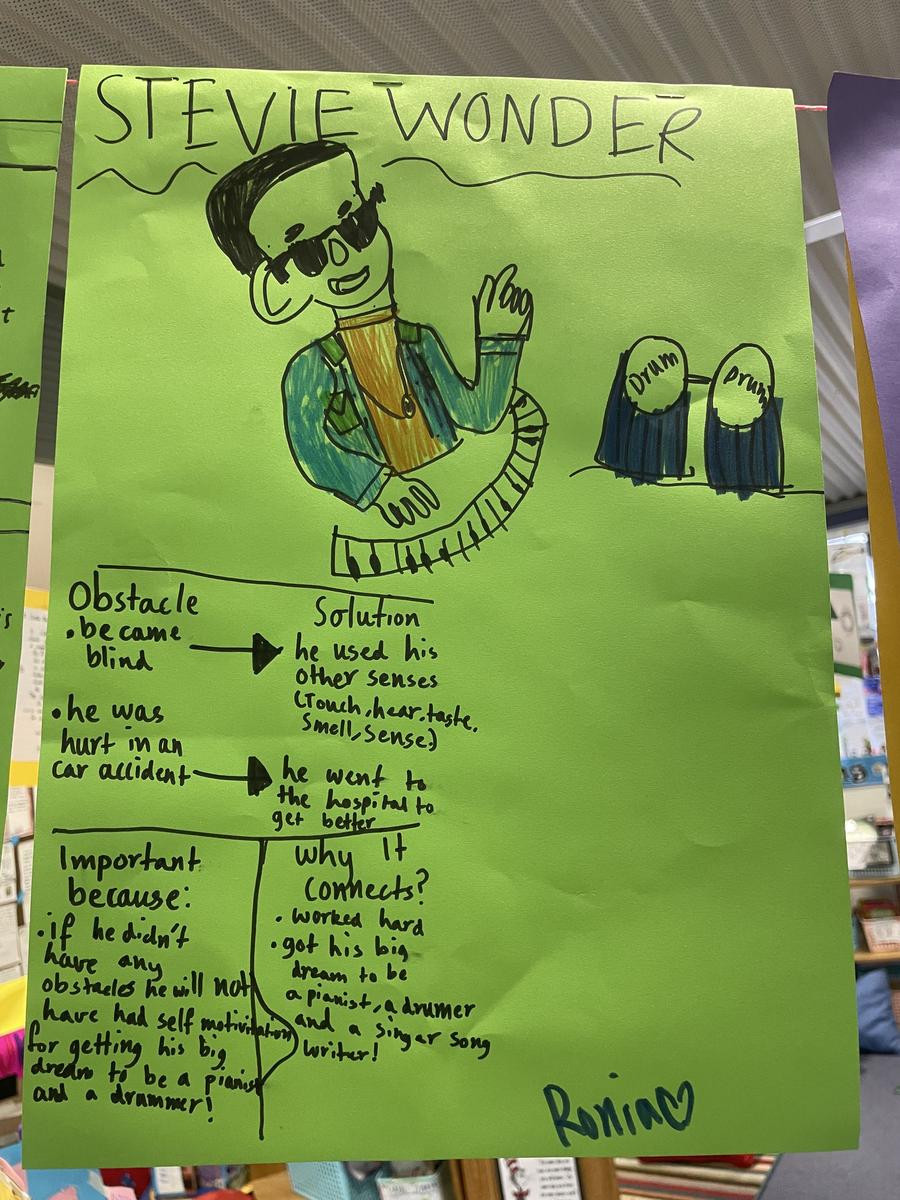 STEVIE WONDER
Drum Drum
Obstacle
• became
blind
• he was
hurt in an
car accident
Solution
he used his
other senses
(Touch, hear, taste,
smell, sense)
he went to
the hospital to
get better
Important
because:
• if he didn't
have any
obstacles he will not
have had self motivitation
for getting his big
dream to be a pianist
and a drummer!
Why It
Connects?
• worked hard
• got his big
dream to be
a pianist, a drumer
and a singer song
writer!
Ronia